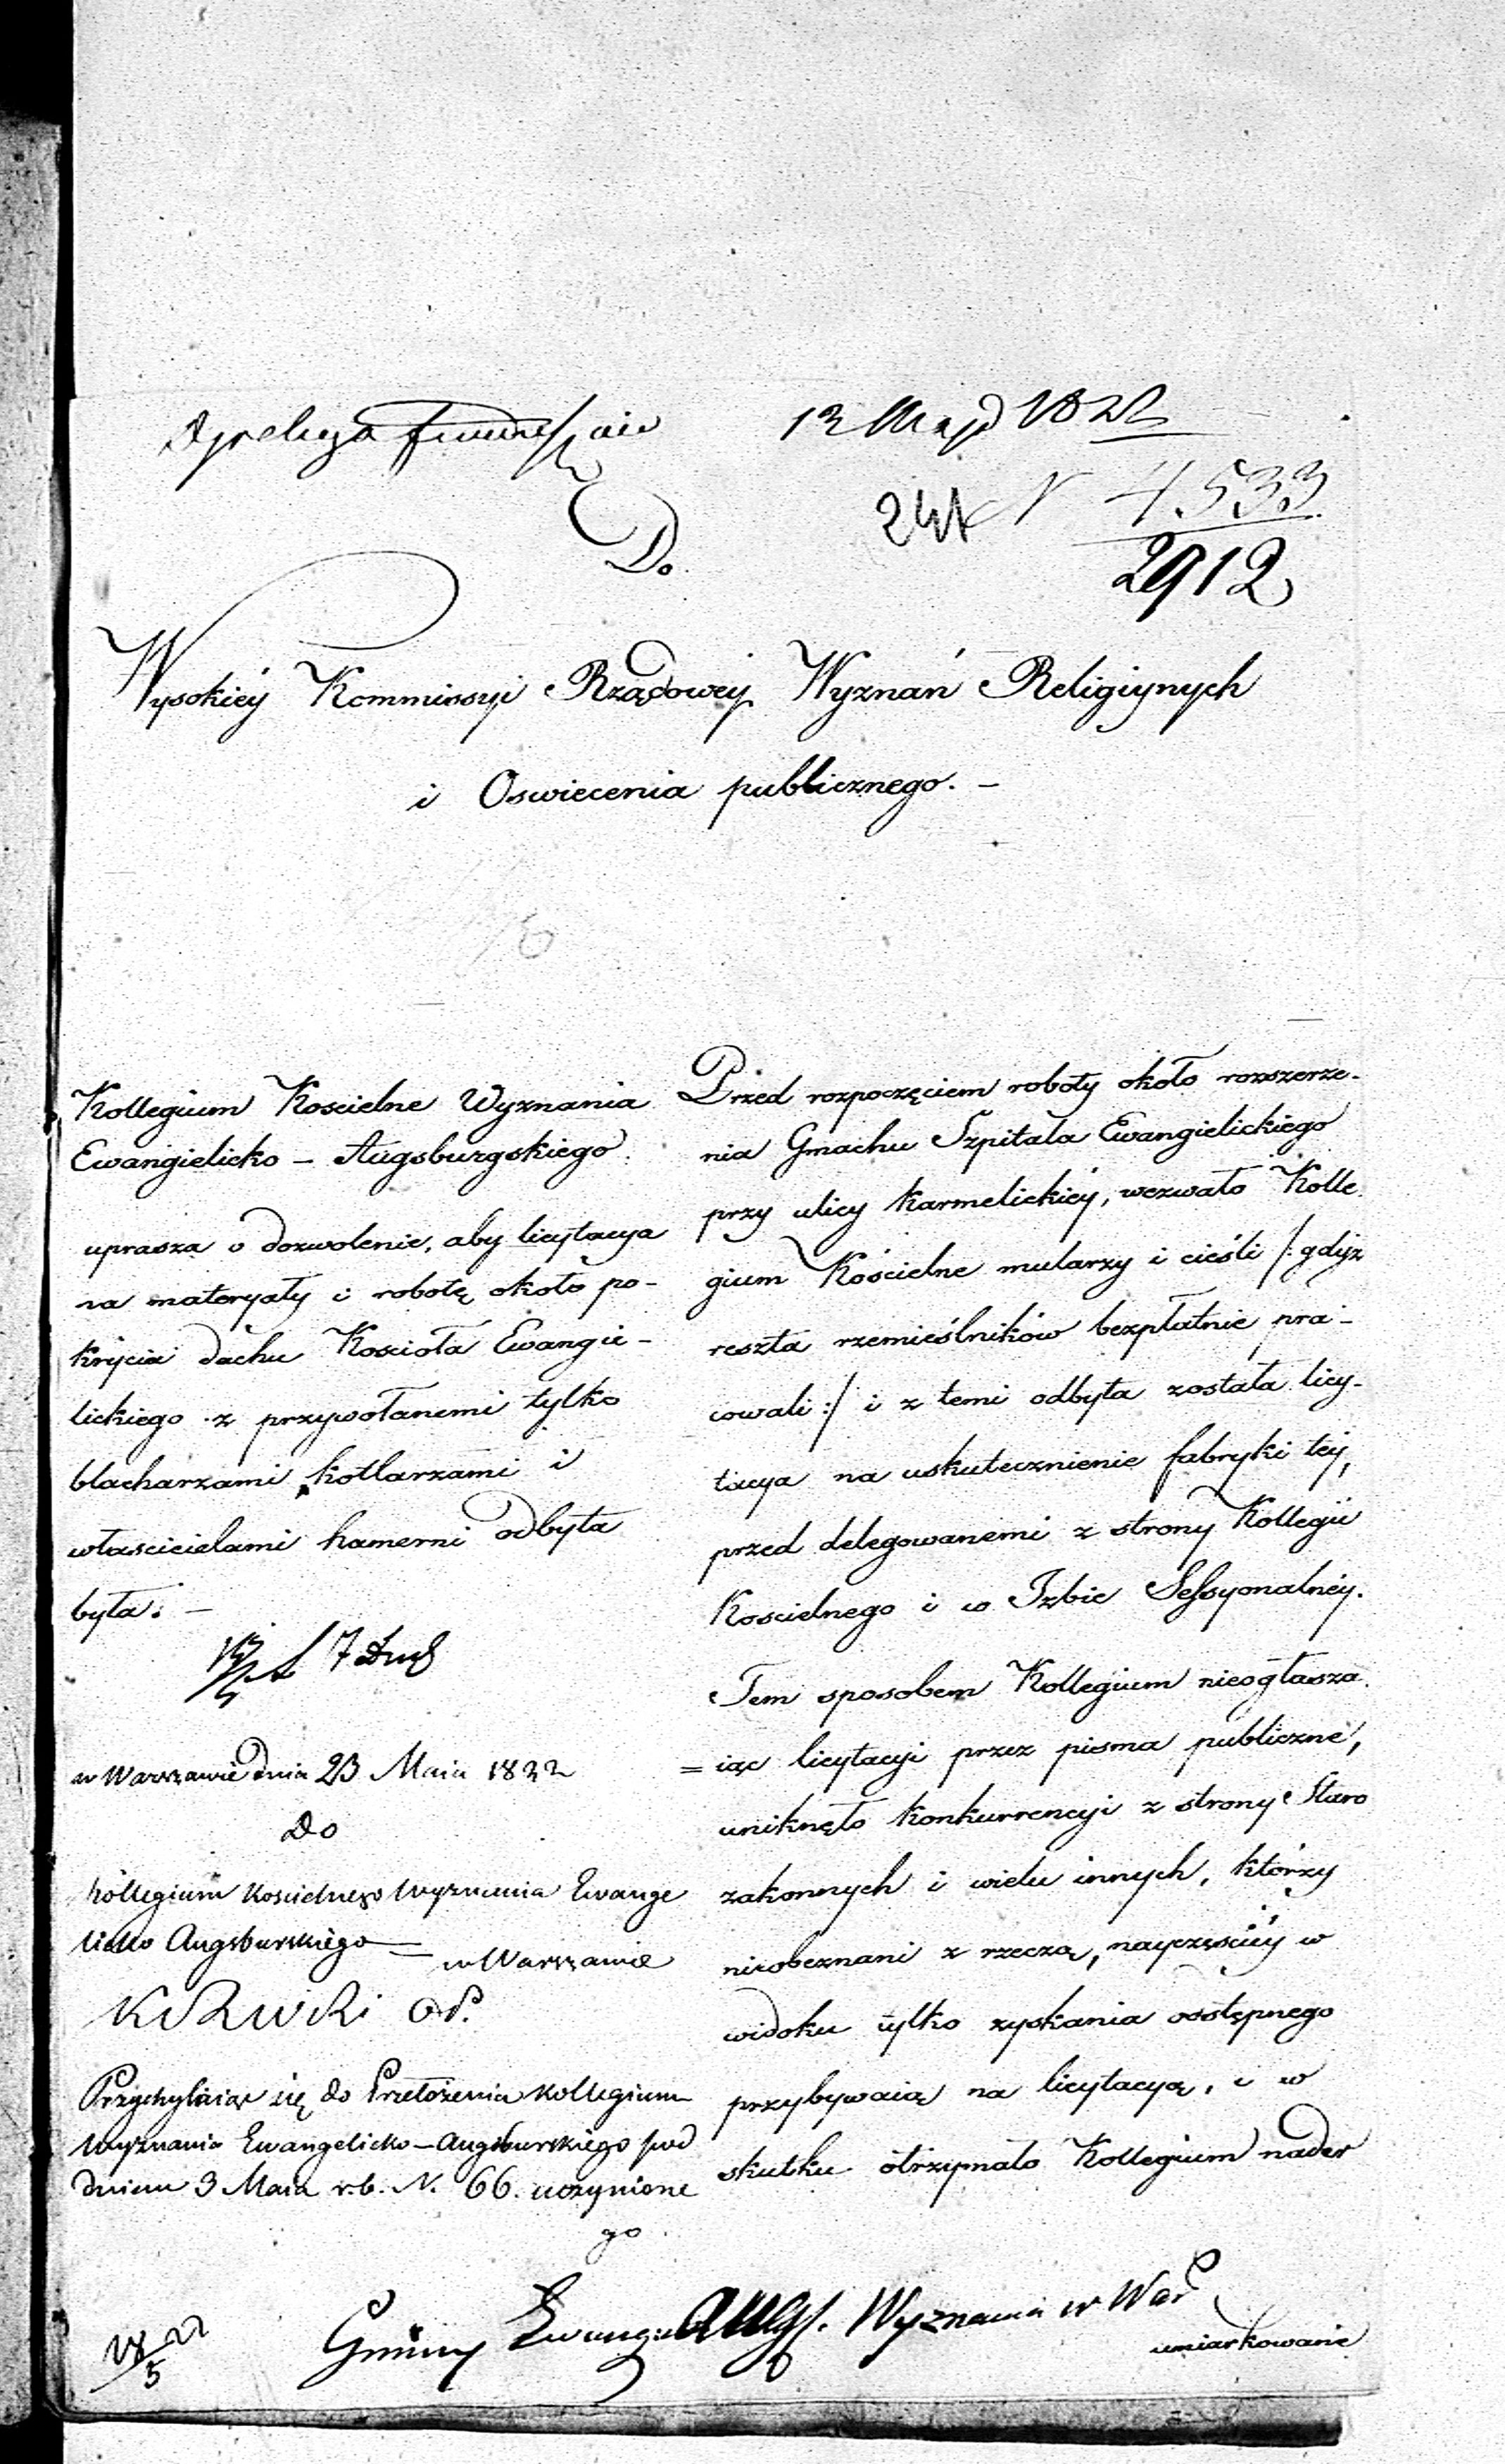 13 Maja 1822
N 4533
2912
Do
Wysokiéy Kommissyi Rządowéy Wyznań Religiynych
i Oswiecenia publicznego. –
Kollegium Koscielne Wyznania
Ewangielicko – Augsburgskiego.
uprasza o dozwolenie, aby licytacya
na materyały i robotę około po-
krycia dachu Koscioła Ewangie-
lickiego z przywołanemi tylko
blacharzami, kotlarzami i
włascicielami hamerni odbyta
była. –
w Warszawie dnia 23 Maia 1822
Do
Kollegium Koscielnego Wyznania Ewange
licko Augsburskiego =
w Warszawie
K R W R i O. P.
Przychylaiąc się do Przełożenia Kollegium
Wyznania Ewangelicko – Augsburskiego pod
dniem 3 Maia r. b. N. 66. uczynione
go
Przed rozpoczęciem roboty około rozszerze-
nia Gmachu Szpitala Ewangielickiego
przy ulicy Karmelickiéy, wezwało Kolle
gium Kościelne mularzy i cieśli /: gdyż
reszta rzemieślników bezpłatnie pra-
cowali :/ i z temi odbyta została licy-
tacya na uskutecznienie fabryki téy,
przed delegowanemi z strony Kollegii
Koscielnego i w Izbie Sessyonalnéy.
Tem sposobem Kollegium nieogłasza
= iąc licytacyi przez pisma publiczne,
uniknęło konkurrencyi z strony Staro
zakonnych i wielu innych, którzy
nieobeznani z rzeczą, nayczęściéy w
widoku tylko zyskania odstępnego
przybywaią na licytacyą, i w
skutku otrzymało Kollegium nader
umiarkowanie
Gminy Ewang. Augs. Wyznania w War
28/5 22